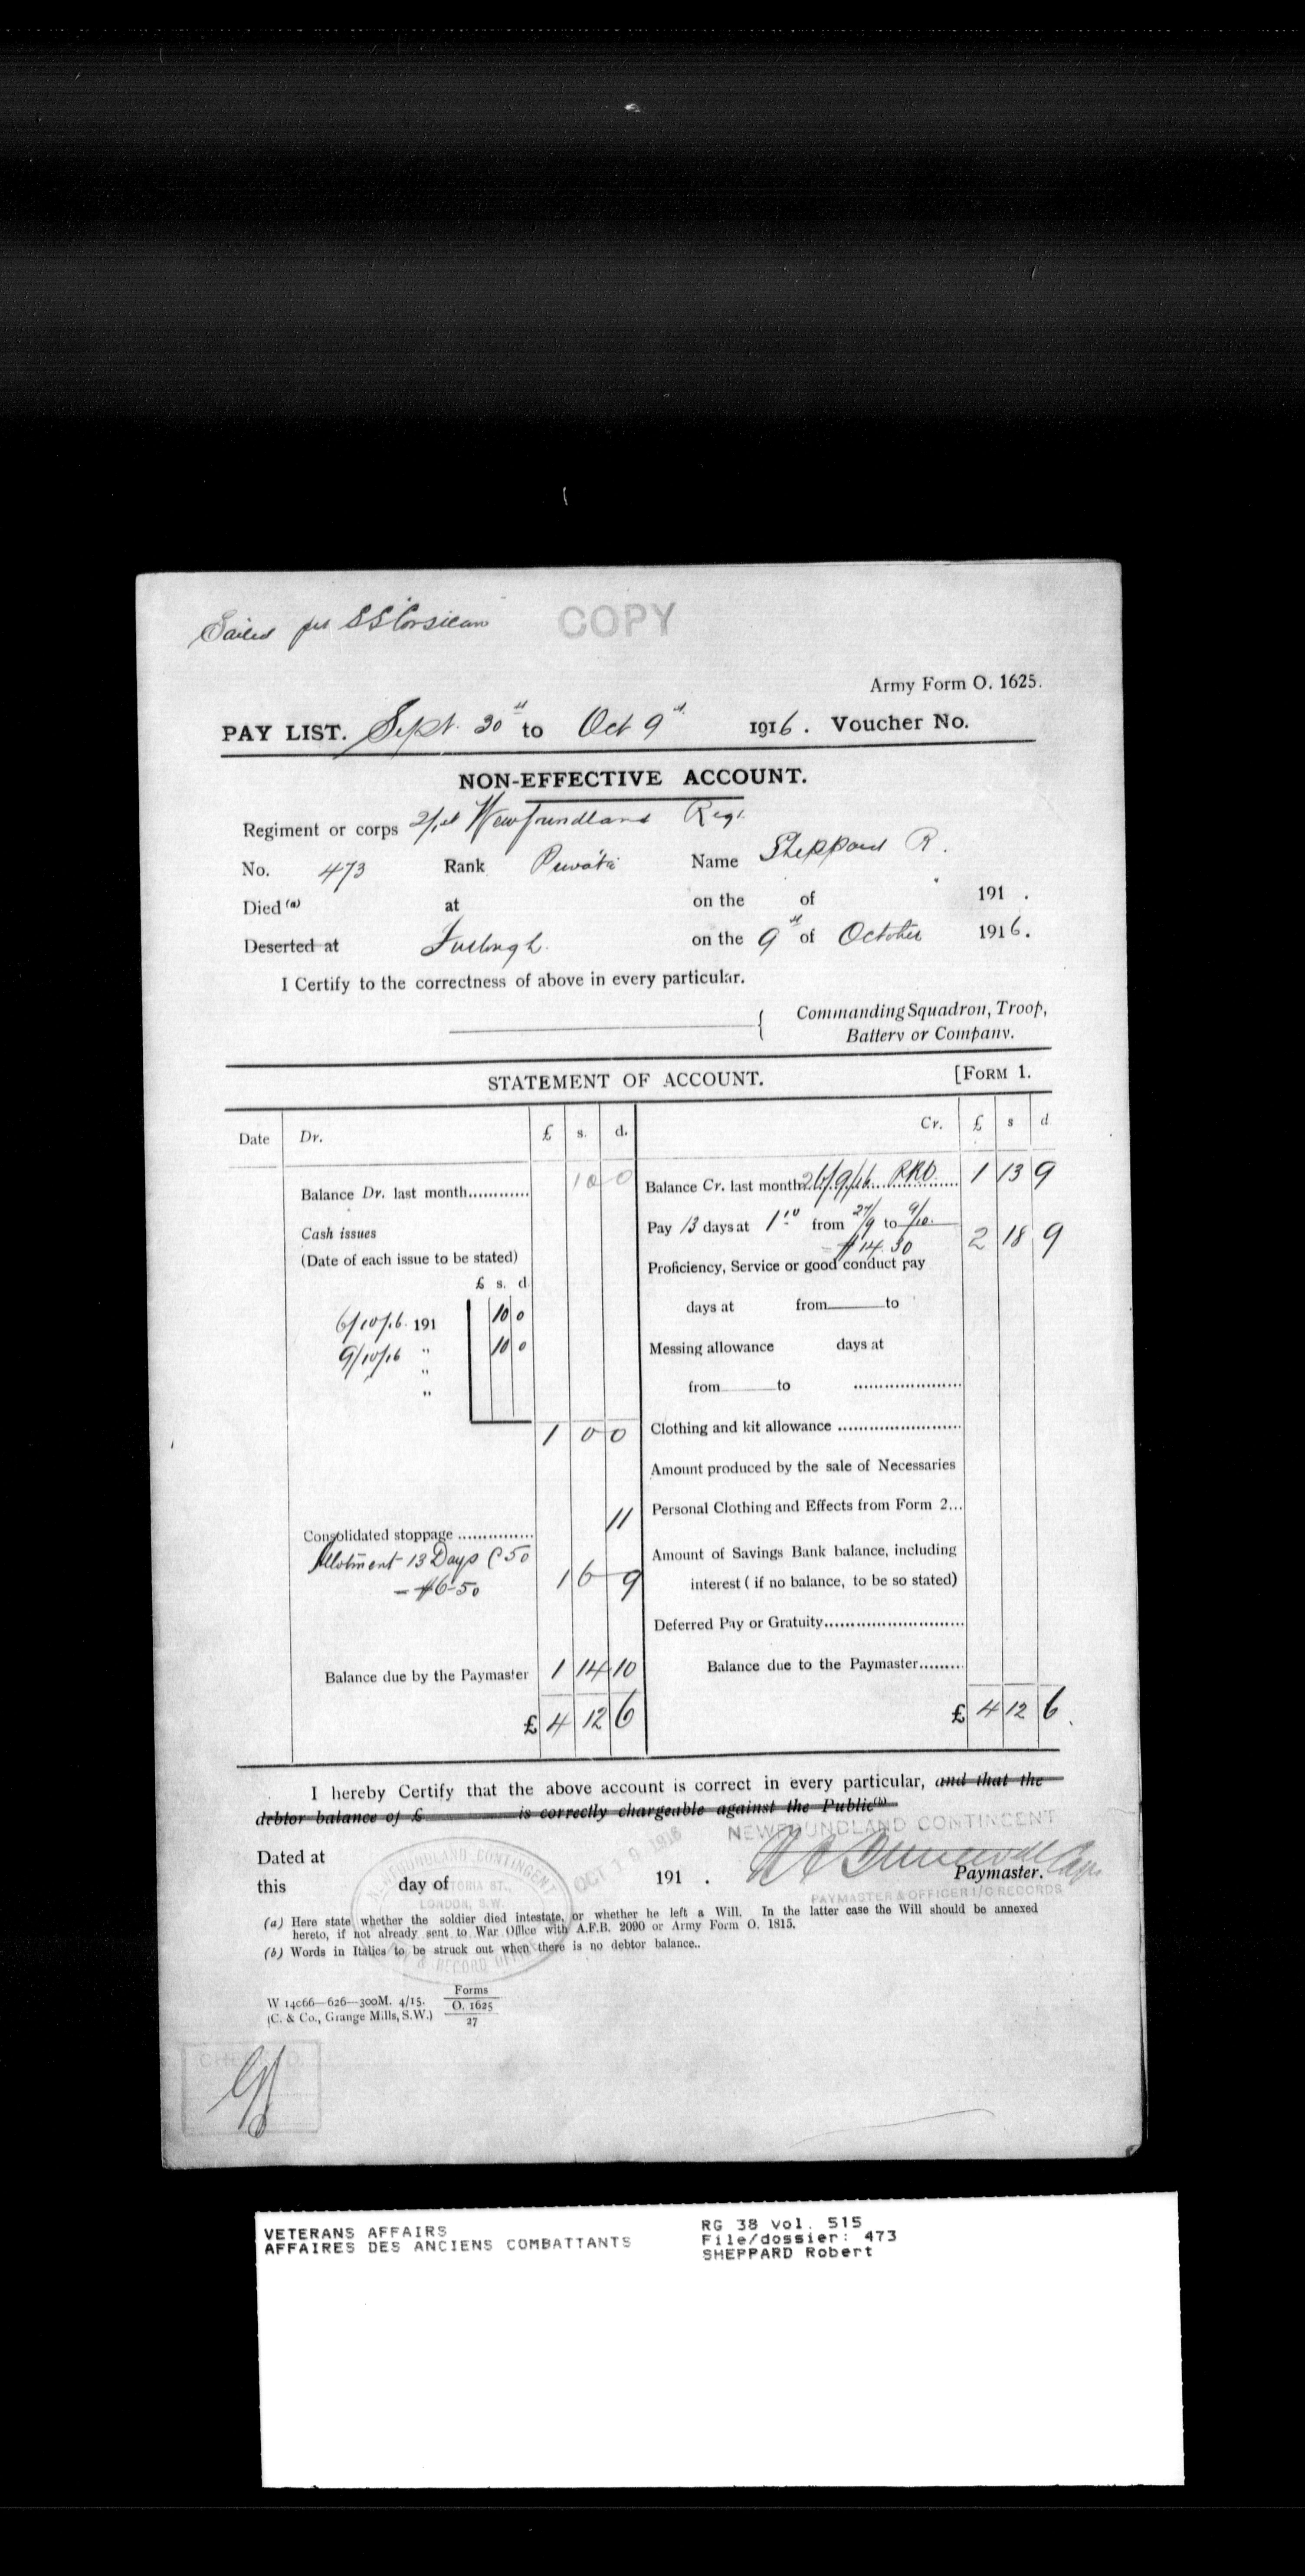 Sailed per SS Corsican
COPY
Army Form O. 1625.
PAY LIST. Sept. 30th to Oct 9th 1916. Voucher No.
NON-EFFECTIVE ACCOUNT.
Regiment or corps 2/1st Newfoundland Regt.
No. 473 Rank Private Name Sheppard R.
Died (a) at on the of 191 .
Deserted at Furlough. on the 9th of October 1916.
I Certify to the correctness of above in every particular.
Commanding Squadron, Troop,
Battery or Company.
STATEMENT OF ACCOUNT. [FORM 1.
Date Dr. £ s. d. Cr. £ s d
Balance Dr. last month............ 10 0 Balance Cr. last month 26/9/16 1 13 9
Cash issues Pay 13 days at 1.10 from 27/9 to 9/10. 2 18 9
$14.30
(Date of each issue to be stated) Proficiency, Service or good conduct pay
£ s. d.
6/10/16. 191 10 0 days at from to
9/10/16 " 10 0 Messing allowance days at
"
" from to ....................
1 0 0 Clothing and kit allowance .......................
Amount produced by the sale of Necessaries
Personal Clothing and Effects from Form 2...
Consolidated stoppage ............... 11
Allotment 13 Days @ 50 Amount of Savings Bank balance, including
- $6-50 1 6 9 interest ( if no balance, to be so stated)
Deferred Pay or Gratuity..........................
Balance due by the Paymaster 1 14 10 Balance due to the Paymaster.........
£ 4 12 6 £ 4 12 6.
I hereby Certify that the above account is correct in every particular, and that the
debtor balance of £ is correctly chargeable against the Public(b)
NEWFOUNDLAND CONTINGENT
Dated at
this day of OCT 19 1916 191 . Paymaster. Capt.
PAYMASTER & OFFICER I/C RECORDS
NEWFOUNDLAND CONTINGENT
VICTORIA ST.,
LONDON, S.W.
& RECORD OFFICE
(a) Here state whether the soldier died intestate, or whether he left a Will. In the latter case the Will should be annexed
hereto, if not already sent to War Office with A.F.B. 2090 or Army Form O. 1815.
(b) Words in Italics to be struck out when there is no debtor balance..
W 14066—626—300M. 4/15. Forms
(C. & Co., Grange Mills, S.W.) O. 1625
27
VETERANS AFFAIRS
AFFAIRES DES ANCIENS COMBATTANTS
RG 38 vol. 515
File/dossier: 473
SHEPPARD Robert